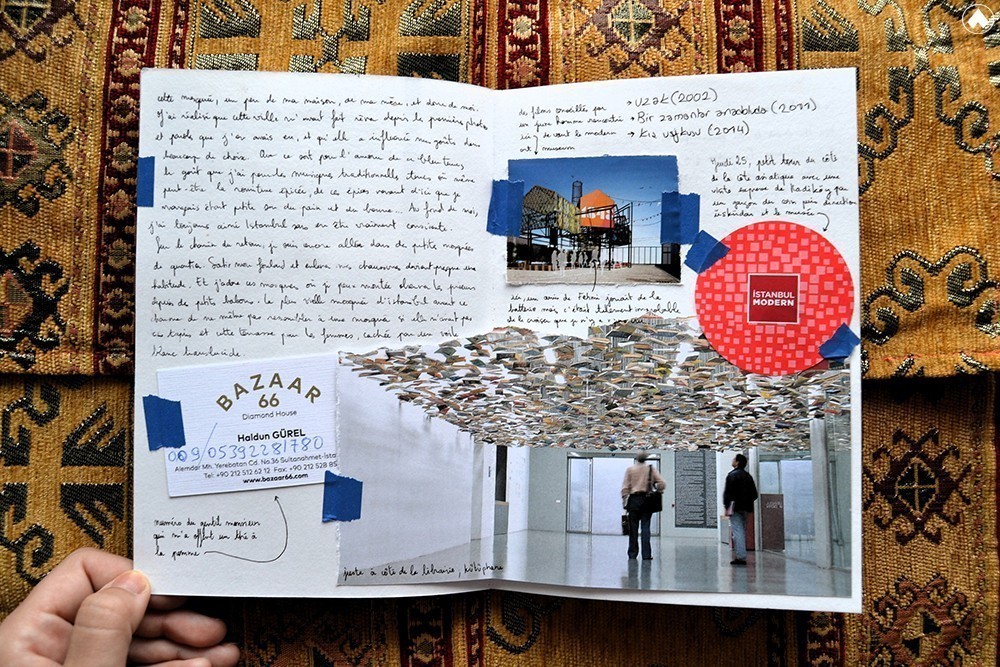 cette mosquée, un peu de ma maison, de ma mère, et donc de moi.
J'ai réalisé que cette ville m'avait fait rêver depuis la première photo
et parole que j'en avais eu, et qu'elle a influencé mes goûts dans
beaucoup de choix. Que ce soit pour l'amour de ce bleu
le goût que j'ai pour la musique traditionnelle turque ou même
peut-être la nourriture épicée, de ces épices venant d'ici que je
mangeais étant petite sur du pain et du beurre. Au fond de moi,
j'ai toujours aimé Istanbul sans en être vraiment consciente.
Sur le chemin du retour, je suis encore allée dans de petites mosquées
de quartier. Sortir mon foulard et enlever mes chaussures devient presque une
habitude. Et j'adore ces mosquées où je peux monter
depuis de petits balcons. La plus vieille mosquée d'Istanbul avait ce
charme de ne même pas ressembler à une mosquée si elle n'avait pas
ses tapis et cette terrasse pour les femmes, cachée par un voile
blanc translucide.
BAZAAR
66
Diamond House
Haldun GÜREL
009/05392281780
Alemdar Mh. Yerebatan Cd. No.36 Sultanahmet-İsta
Tel: +90 212 512 62 12 Fax: +90 212 528 85
www.bazaar66.com
numéro du gentil monsieur
qui m'a offert un thé à
la pomme
des films conseillés par
un jeune homme rencontré
ici, devant le modern
art museum
→ UZAK (2002)
→ Bir zamanlar anadoluda (2011)
→ Kış uykusu (2014)
Jeudi 25, petit tour du côté
de la côte asiatique avec une
visite express de Kadıköy par
un garçon du coin puis direction
üsküdar et le musée
ISTANBUL
MODERN
ici, un ami de Fehmi jouait de la
batterie mais c'était tellement improbable
de le croiser que je n'y
juste à côté de la librairie, kütüphane